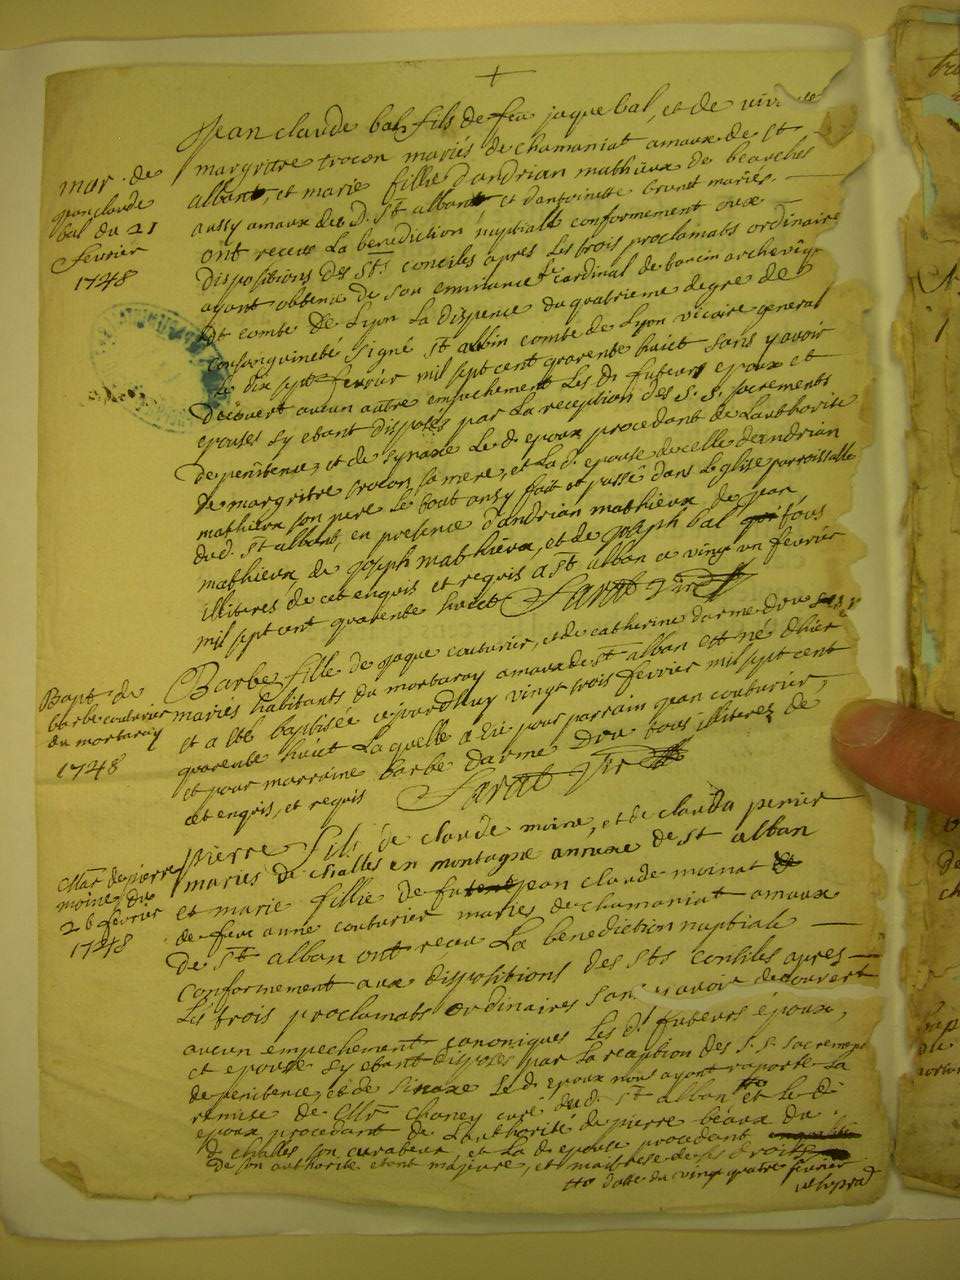 Jean claude bal fils de feu jaque bal, et de vivante
mar. de
jean claude
bal du 21
fevrier
1748
margritte trocon mariés de chamaniat annaxe de st
alban, et marie fillie d'andrian mathieux de bearches
aussy annaxe dud. st alban et d'antoinette brunet mariés
ont receu la benediction nuptialle conformement aux
dispositions des sts. conciles apres les trois proclamats ordinaire
ayant obtenu de son eminance le cardinal de tancin archevêq
et comte de Lyon la dispence du quatrieme degre de
consanguineté signé st albin comte de Lyon vicaire general
le dix sept fevrier mil sept cent quarente huict sans y avoir
decouvert aucun autre empechement les d. futeurs epoux et
epouses sy etant disposés par la reception des S. S. sacrements
de penitence, et de synaxe le d. epoux procedant de l'authorite
de margritte trocon sa mere, et la d. epouse de celle d'andrian
mathieux son pere le tout ainsy fait et passé dans l'eglise parroissialle
dud. st alban, en presence d'andrian mathieux de jean
mathieux de joseph mathieux, et de joseph bal tous
illiteres de ce enquis et requis a st alban ce vingt un fevrier
mil sept cent quarente huict
Bapt. de
barbe couturier
du mortaray
1748
Barbe fille de jaque couturier, et de catherine darme dru
mariés habitants du mortaray annaxe de st alban est né d'hier
et a eté baptisée ajourdhuy vingt trois fevrier mil sept cent
quarente huict laquelle a eu pour parrain jean couturier,
et pour marraine barbe darme dru tous illiteres de
ce enquis, et requis
Mar. de pierre
moine du
26 fevrier
1748
pierre fils de claude moine, et de claudа perier
mariés de challes en montagne annaxe de st alban
et marie fillie de jean claude moinat
de feue anne couturier mariés de chamaniat annaxe
de st alban ont receu la benediction nuptiale
conformement aux dispositions des sts consiles apres
les trois proclamats ordinaires sans y avoir decouvert
aucun empechement canoniques les d. futeurs époux,
et epouse sy etant disposés par la reception des S. S. sacremens
de penitence, et de sinaxe le d. epoux nous ayant raporté la
remise de Mr chaney curé dud. st alban et le d.
epoux procedant de l'authorité de pierre beaux du
d. challes son curateur, et la d. epouse procedant
de son authorite etant majeure, et maitresse de ses droits
datte du vingt quatre fevrier